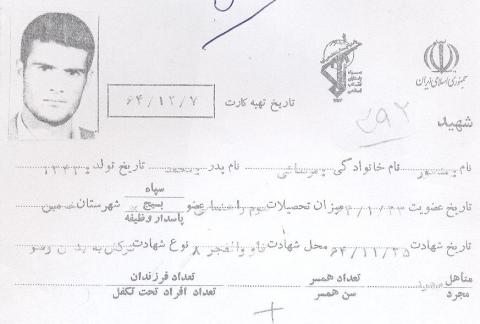 جمهوری اسلامی ایران
تاریخ تهیه کارت ۶۴/۱۲/۷
شهید
۵۹۲
نام منصور نام خانوادگی نام پدر محمد تاریخ تولد ۱۳۴۳
سپاه
تاریخ عضویت میزان تحصیلات سوم راهنمایی عضو بسیج شهرستان خمین
پاسدار وظیفه
تاریخ شهادت ۶۴/۱۱/۲۵ محل شهادت فاو والفجر ۸ نوع شهادت ترکش به بدن
متاهل تعداد همسر تعداد فرزندان
مجرد سن همسر تعداد افراد تحت تکفل